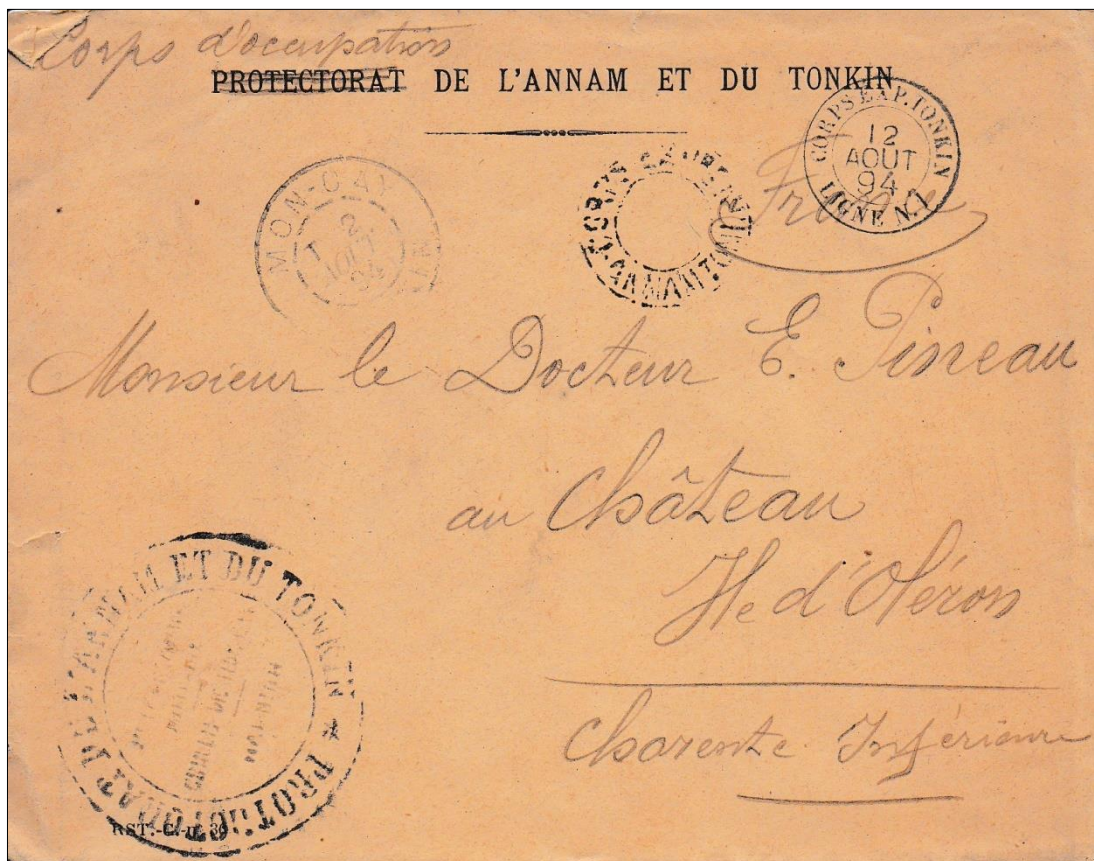 Corps d'occupation
PROTECTORAT DE L'ANNAM ET DU TONKIN
CORPS EXP. TONKIN
12
AOUT
94
LIGNE N.1
MON-CAY
2
AOUT
CORPS
ANNAM TONKIN
France
Monsieur le Docteur E. Pineau
au Château
Ile d'Oléron
Charente Inférieure
PROTECTORAT DE L'ANNAM ET DU TONKIN
RST.